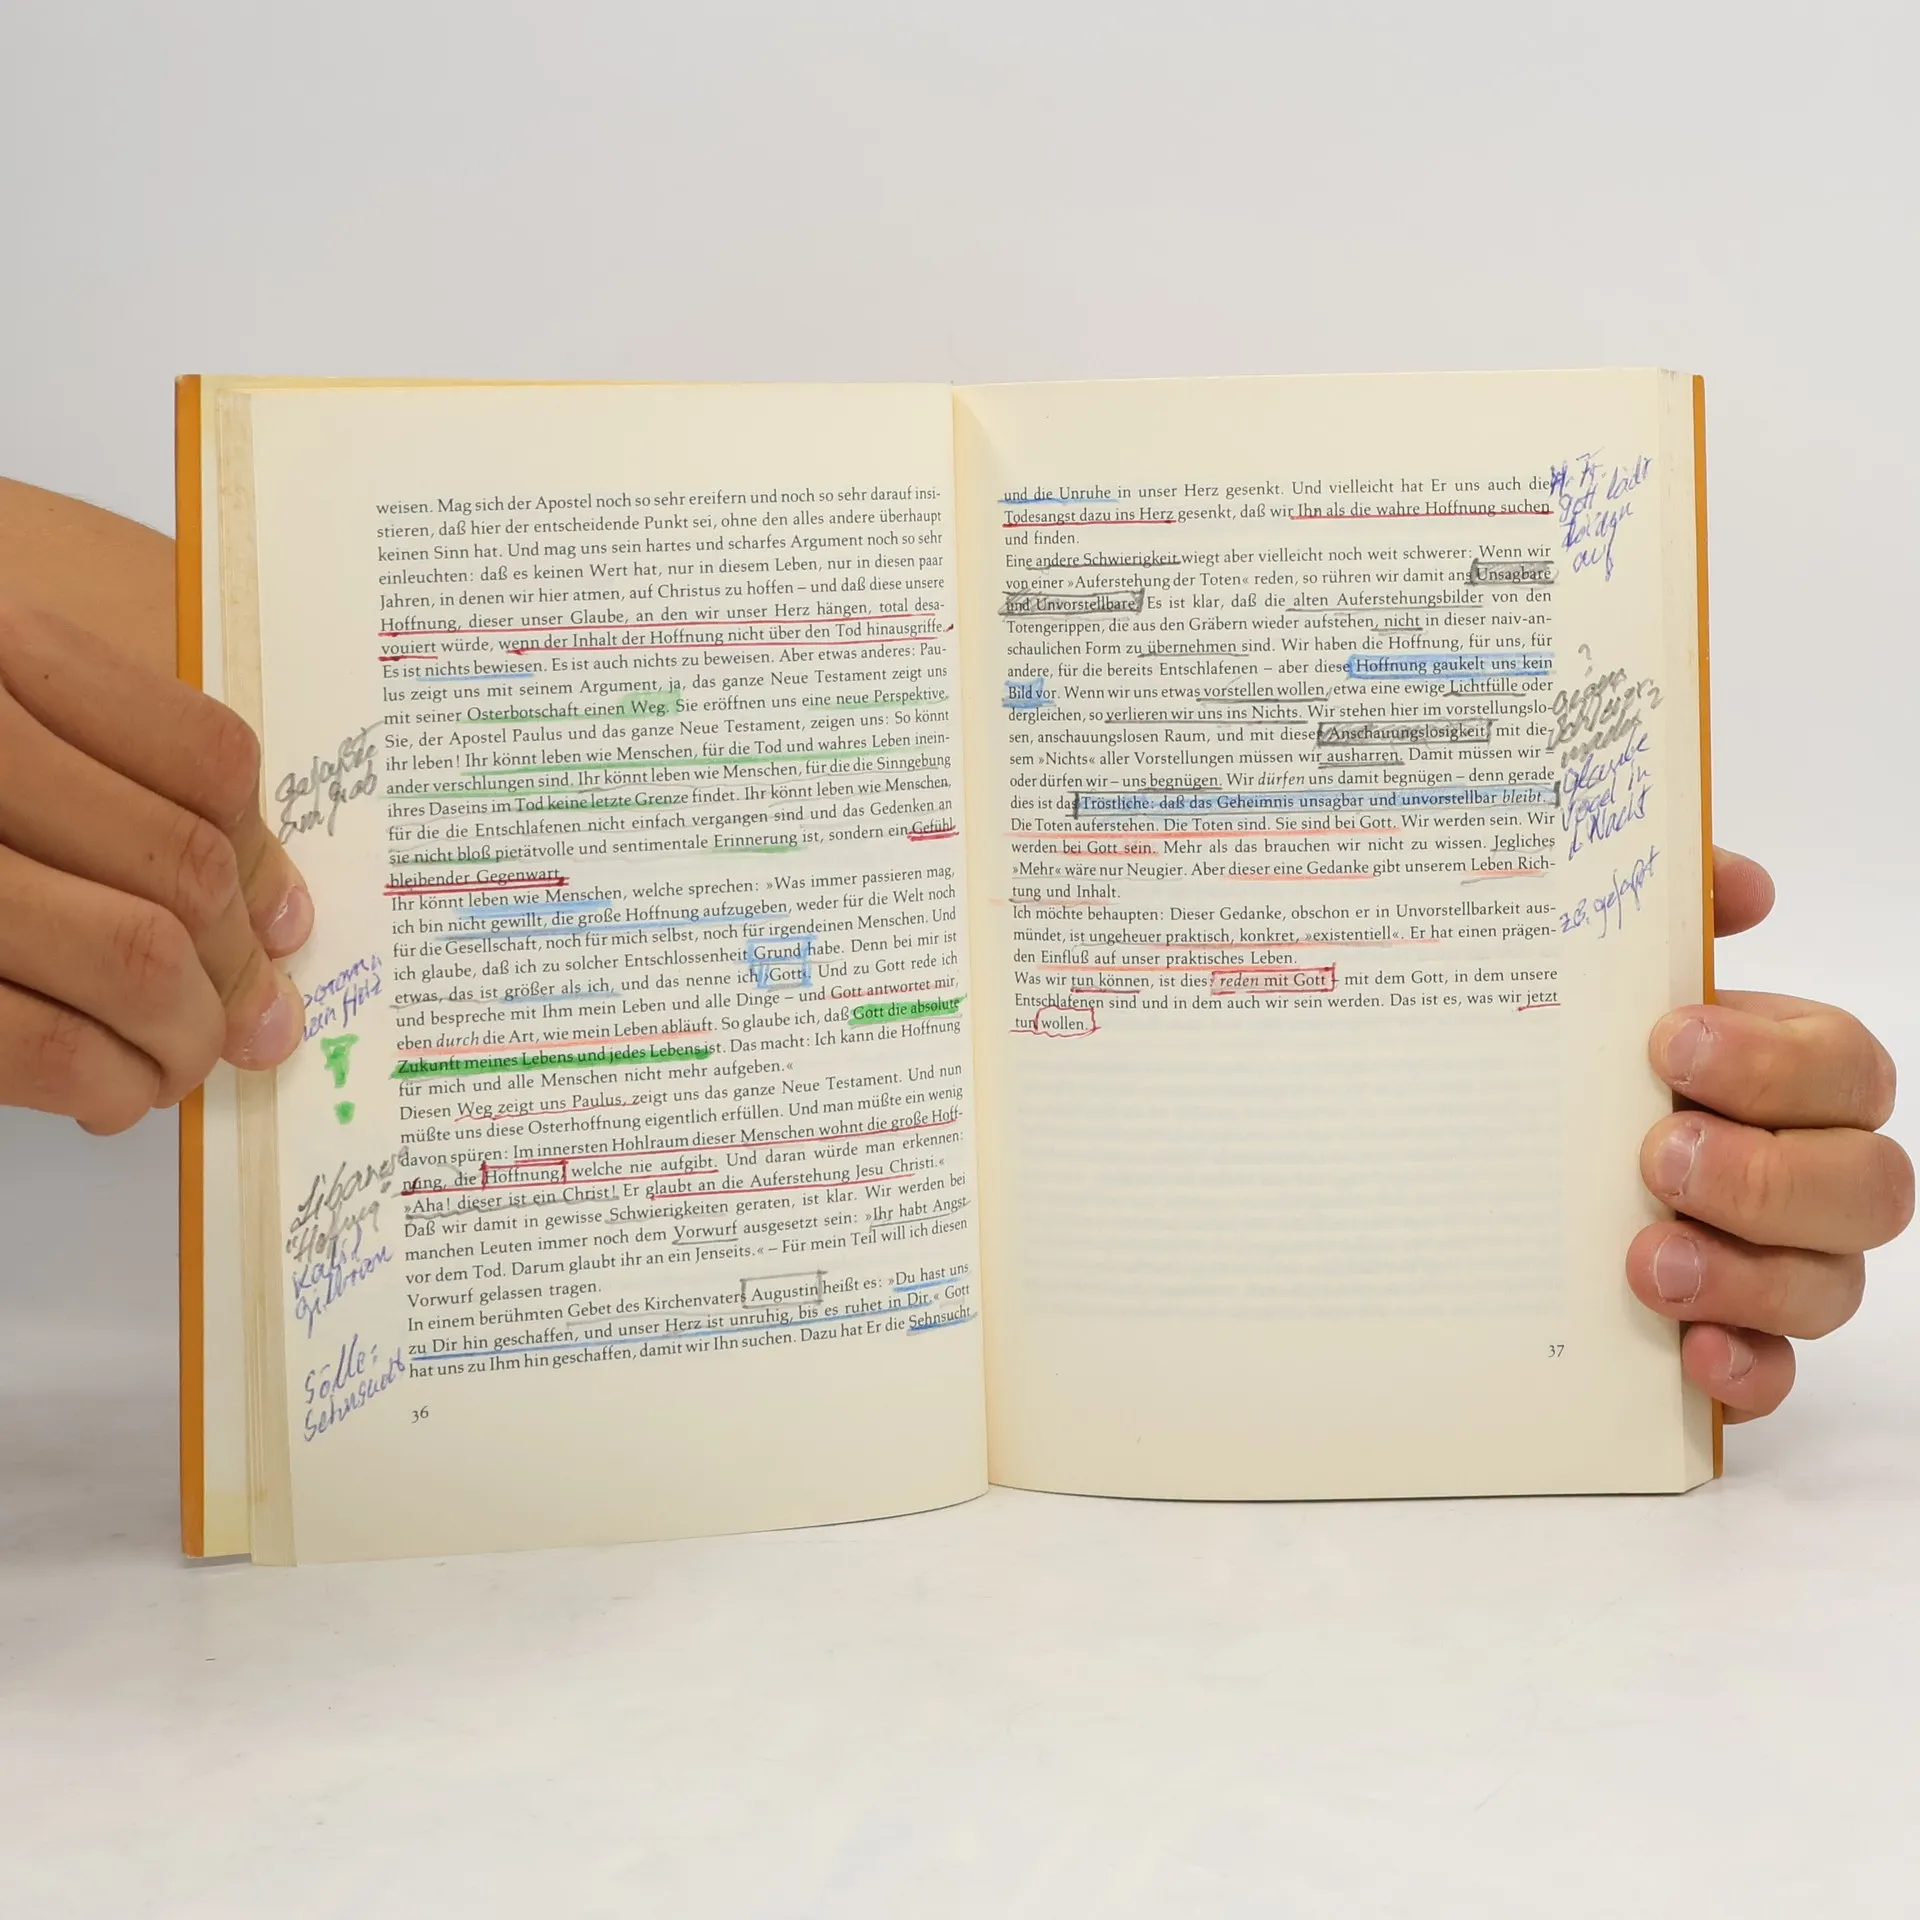 weisen. Mag sich der Apostel noch so sehr ereifern und noch so sehr darauf insi-
stieren, daß hier der entscheidende Punkt sei, ohne den alles andere überhaupt
keinen Sinn hat. Und mag uns sein hartes und scharfes Argument noch so sehr
einleuchten: daß es keinen Wert hat, nur in diesem Leben, nur in diesen paar
Jahren, in denen wir hier atmen, auf Christus zu hoffen – und daß diese unsere
Hoffnung, dieser unser Glaube, an den wir unser Herz hängen, total desa-
vouiert würde, wenn der Inhalt der Hoffnung nicht über den Tod hinausgriffe.
Es ist nichts bewiesen. Es ist auch nichts zu beweisen. Aber etwas anderes: Pau-
lus zeigt uns mit seinem Argument, ja, das ganze Neue Testament zeigt uns
mit seiner Osterbotschaft einen Weg. Sie eröffnen uns eine neue Perspektive.
Sie, der Apostel Paulus und das ganze Neue Testament, zeigen uns: So könnt
ihr leben! Ihr könnt leben wie Menschen, für die Tod und wahres Leben inein-
ander verschlungen sind. Ihr könnt leben wie Menschen, für die die Sinngebung
ihres Daseins im Tod keine letzte Grenze findet. Ihr könnt leben wie Menschen,
für die die Entschlafenen nicht einfach vergangen sind und das Gedenken an
sie nicht bloß pietätvolle und sentimentale Erinnerung ist, sondern ein Gefühl
bleibender Gegenwart.
Ihr könnt leben wie Menschen, welche sprechen: »Was immer passieren mag,
ich bin nicht gewillt, die große Hoffnung aufzugeben, weder für die Welt noch
für die Gesellschaft, noch für mich selbst, noch für irgendeinen Menschen. Und
ich glaube, daß ich zu solcher Entschlossenheit Grund habe. Denn bei mir ist
etwas, das ist größer als ich, und das nenne ich ›Gott‹. Und zu Gott rede ich
und bespreche mit Ihm mein Leben und alle Dinge – und Gott antwortet mir,
eben durch die Art, wie mein Leben abläuft. So glaube ich, daß Gott die absolute
Zukunft meines Lebens und jedes Lebens ist. Das macht: Ich kann die Hoffnung
für mich und alle Menschen nicht mehr aufgeben.«
Diesen Weg zeigt uns Paulus, zeigt uns das ganze Neue Testament. Und nun
müßte uns diese Osterhoffnung eigentlich erfüllen. Und man müßte ein wenig
davon spüren: Im innersten Hohlraum dieser Menschen wohnt die große Hoff-
nung, die Hoffnung, welche nie aufgibt. Und daran würde man erkennen:
»Aha! dieser ist ein Christ! Er glaubt an die Auferstehung Jesu Christi.«
Daß wir damit in gewisse Schwierigkeiten geraten, ist klar. Wir werden bei
manchen Leuten immer noch dem Vorwurf ausgesetzt sein: »Ihr habt Angst
vor dem Tod. Darum glaubt ihr an ein Jenseits.« – Für mein Teil will ich diesen
Vorwurf gelassen tragen.
In einem berühmten Gebet des Kirchenvaters Augustin heißt es: »Du hast uns
zu Dir hin geschaffen, und unser Herz ist unruhig, bis es ruhet in Dir.« Gott
hat uns zu Ihm hin geschaffen, damit wir Ihn suchen. Dazu hat Er die Sehnsucht
36
am grab
mein Herz
!
Libanese
Kalil
Sölle:
Sehnsucht
und die Unruhe in unser Herz gesenkt. Und vielleicht hat Er uns auch die
Todesangst dazu ins Herz gesenkt, daß wir Ihn als die wahre Hoffnung suchen
und finden.
Eine andere Schwierigkeit wiegt aber vielleicht noch weit schwerer: Wenn wir
von einer »Auferstehung der Toten« reden, so rühren wir damit ans Unsagbare
und Unvorstellbare. Es ist klar, daß die alten Auferstehungsbilder von den
Totengerippen, die aus den Gräbern wieder aufstehen, nicht in dieser naiv-an-
schaulichen Form zu übernehmen sind. Wir haben die Hoffnung, für uns, für
andere, für die bereits Entschlafenen – aber diese Hoffnung gaukelt uns kein
Bild vor. Wenn wir uns etwas vorstellen wollen, etwa eine ewige Lichtfülle oder
dergleichen, so verlieren wir uns ins Nichts. Wir stehen hier im vorstellungslo-
sen, anschauungslosen Raum, und mit dieser Anschauungslosigkeit, mit die-
sem »Nichts« aller Vorstellungen müssen wir ausharren. Damit müssen wir –
oder dürfen wir – uns begnügen. Wir dürfen uns damit begnügen – denn gerade
dies ist das Tröstliche: daß das Geheimnis unsagbar und unvorstellbar bleibt.
Die Toten auferstehen. Die Toten sind. Sie sind bei Gott. Wir werden sein. Wir
werden bei Gott sein. Mehr als das brauchen wir nicht zu wissen. Jegliches
»Mehr« wäre nur Neugier. Aber dieser eine Gedanke gibt unserem Leben Rich-
tung und Inhalt.
Ich möchte behaupten: Dieser Gedanke, obschon er in Unvorstellbarkeit aus-
mündet, ist ungeheuer praktisch, konkret, »existentiell«. Er hat einen prägen-
den Einfluß auf unser praktisches Leben.
Was wir tun können, ist dies: reden mit Gott – mit dem Gott, in dem unsere
Entschlafenen sind und in dem auch wir sein werden. Das ist es, was wir jetzt
tun wollen.
37
Gott
auf
?
Glaube
Vogel in
d. Nacht
z.B. gefasst